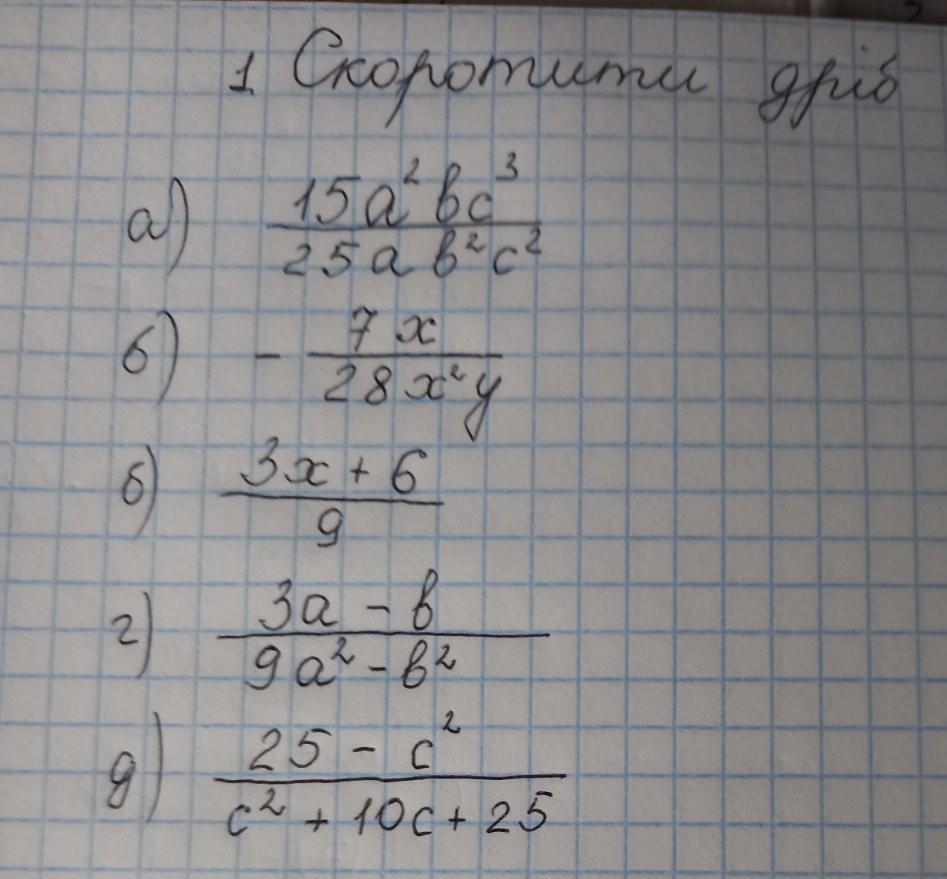 1. Скоротити дріб
а) 15a²bc³ / 25ab²c²
б) - 7x / 28x²y
в) 3x + 6 / 9
г) 3a - b / 9a² - b²
д) 25 - c² / c² + 10c + 25